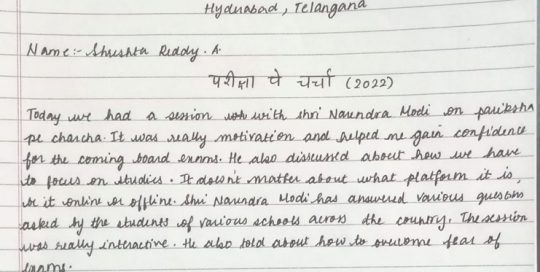 Hyderabad, Telangana
Name:- Shreshta Reddy. A.
परीक्षा पे चर्चा (2022)
Today we had a session with shri Narendra Modi on pariksha
pe charcha. It was really motivation and helped me gain confidence
for the coming board exams. He also discussed about how we have
to focus on studies. It doesn't matter about what platform it is,
is it online or offline. Shri Narendra Modi has answered various questions
asked by the students of various schools across the country. The session
was really interactive. He also told about how to overcome fear of
exams.